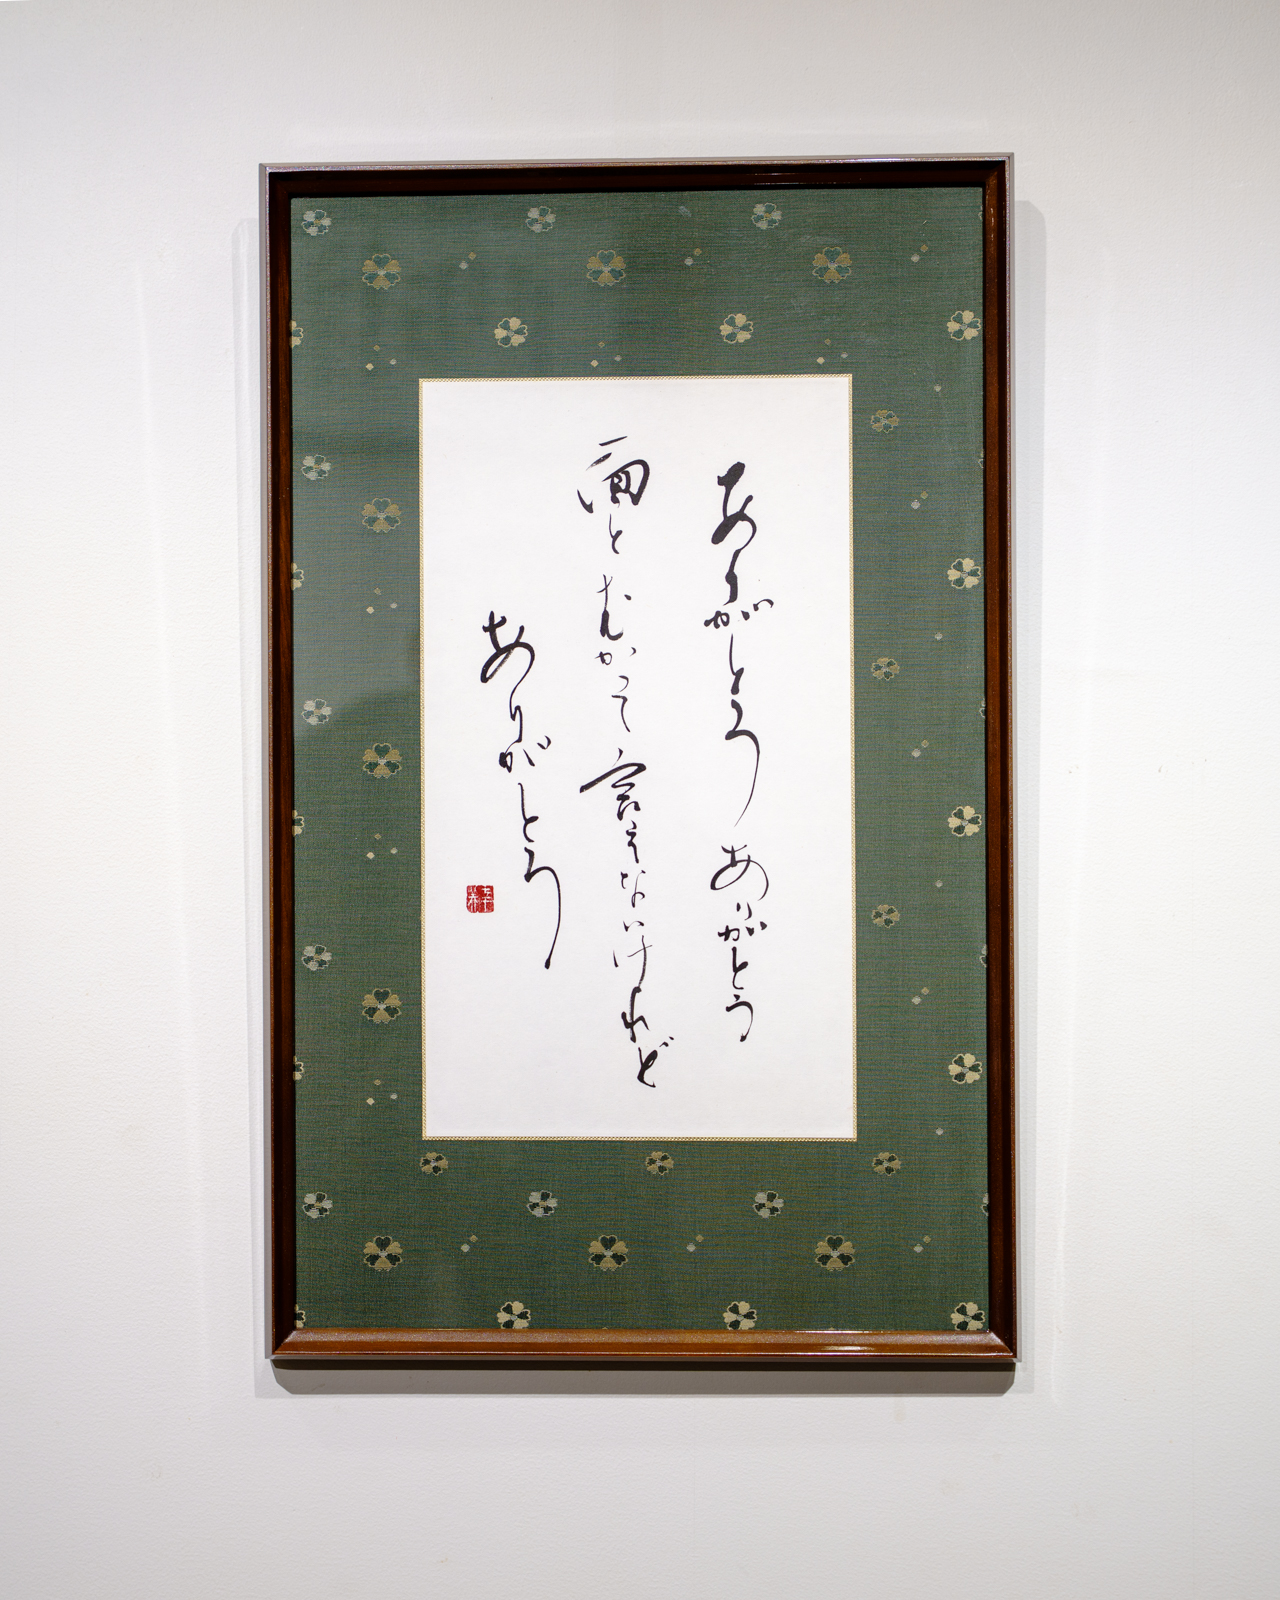 ありがとう ありがとう
面とむかって言えないけれど
ありがとう